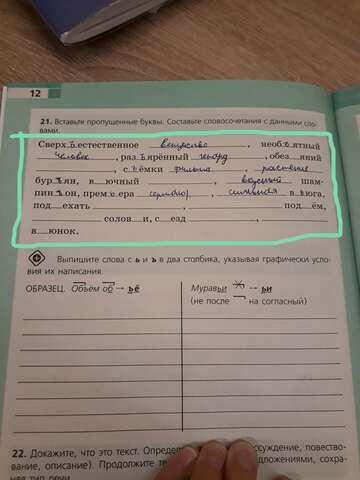 12
21. Вставьте пропущенные буквы. Составьте словосочетания с данными сло-
вами.
Сверх ъ естественное вещество, необ ъ ятный
человек, раз ъ ярённый гепард, обез__яний
, с ъ ёмки фильма, растение
бур__ян, в__ючный , вкусный шам-
пин__он, прем ь ера сериала, сильная в ь юга,
под__ехать , под__ём,
солов__и, с__езд ,
в__юнок.
Выпишите слова с ь и ъ в два столбика, указывая графически усло-
вия их написания.
ОБРАЗЕЦ. Объём об → ъё
Муравьи → ьи
(не после на согласный)
22. Докажите, что это текст. Определ ссуждение, повество-
вание, описание). Продолжите те едложениями, сохра-
няя тип речи.